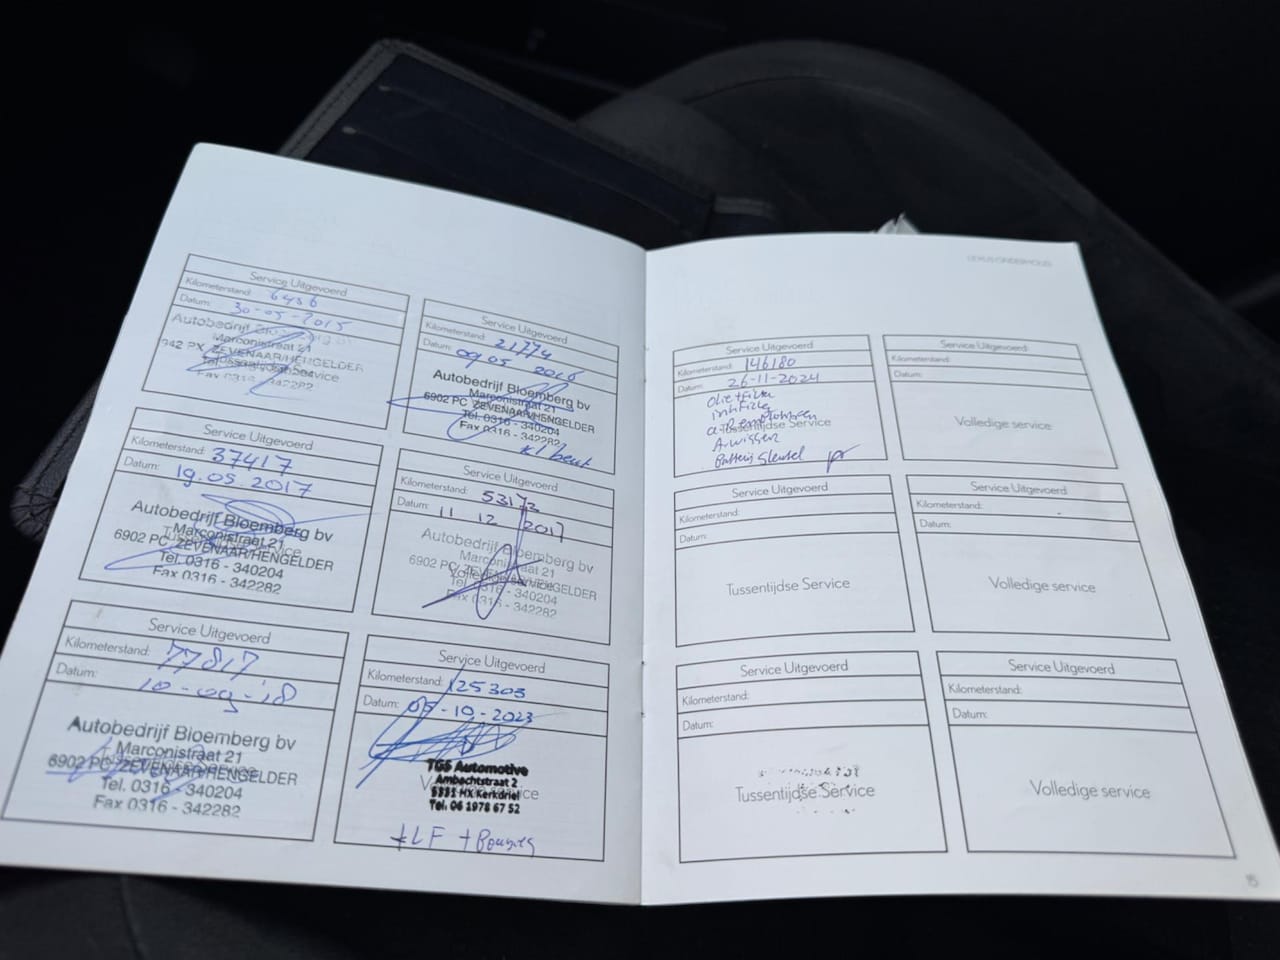 Service Uitgevoerd
Kilometerstand: 6456
Datum: 30-05-2015
Autobedrijf
Marconistraat 21
ZEVENAAR/HENGELDER
Tussentijdse Service
Fax 0316 - 342282
Service Uitgevoerd
Kilometerstand: 21774
Datum: 09.05 2016
Autobedrijf Bloemberg bv
Marconistraat 21
6902 PC ZEVENAAR/HENGELDER
Tel. 0316 - 340204
Fax 0316 - 342282
Kl beurt
Service Uitgevoerd
Kilometerstand: 37417
Datum: 19.05.2017
Autobedrijf Bloemberg bv
Marconistraat 21
6902 PC ZEVENAAR/HENGELDER
Tel. 0316 - 340204
Fax 0316 - 342282
Service Uitgevoerd
Kilometerstand: 53172
Datum: 11 12 2017
Autobedrijf Bloemberg bv
Marconistraat 21
6902 PC ZEVENAAR/HENGELDER
Volledige service
Fax 0316 - 342282
Service Uitgevoerd
Kilometerstand: 77817
Datum: 10-09-'18
Autobedrijf Bloemberg bv
Marconistraat 21
6902 PC ZEVENAAR/HENGELDER
Tel. 0316 - 340204
Fax 0316 - 342282
Service Uitgevoerd
Kilometerstand: 125303
Datum: 05-10-2023
TGS Automotive
Ambachtstraat 2
5331 HX Kerkdriel
Tel. 06 1978 67 52
+LF + Bougies
LEXUS ONDERHOUD
Service Uitgevoerd
Kilometerstand: 146180
Datum: 26-11-2024
Oliefilter
Tussentijdse Service
A. wissen
Batterij sleutel
Service Uitgevoerd
Kilometerstand:
Datum:
Volledige service
Service Uitgevoerd
Kilometerstand:
Datum:
Tussentijdse Service
Service Uitgevoerd
Kilometerstand:
Datum:
Volledige service
Service Uitgevoerd
Kilometerstand:
Datum:
Tussentijdse Service
Service Uitgevoerd
Kilometerstand:
Datum:
Volledige service
15